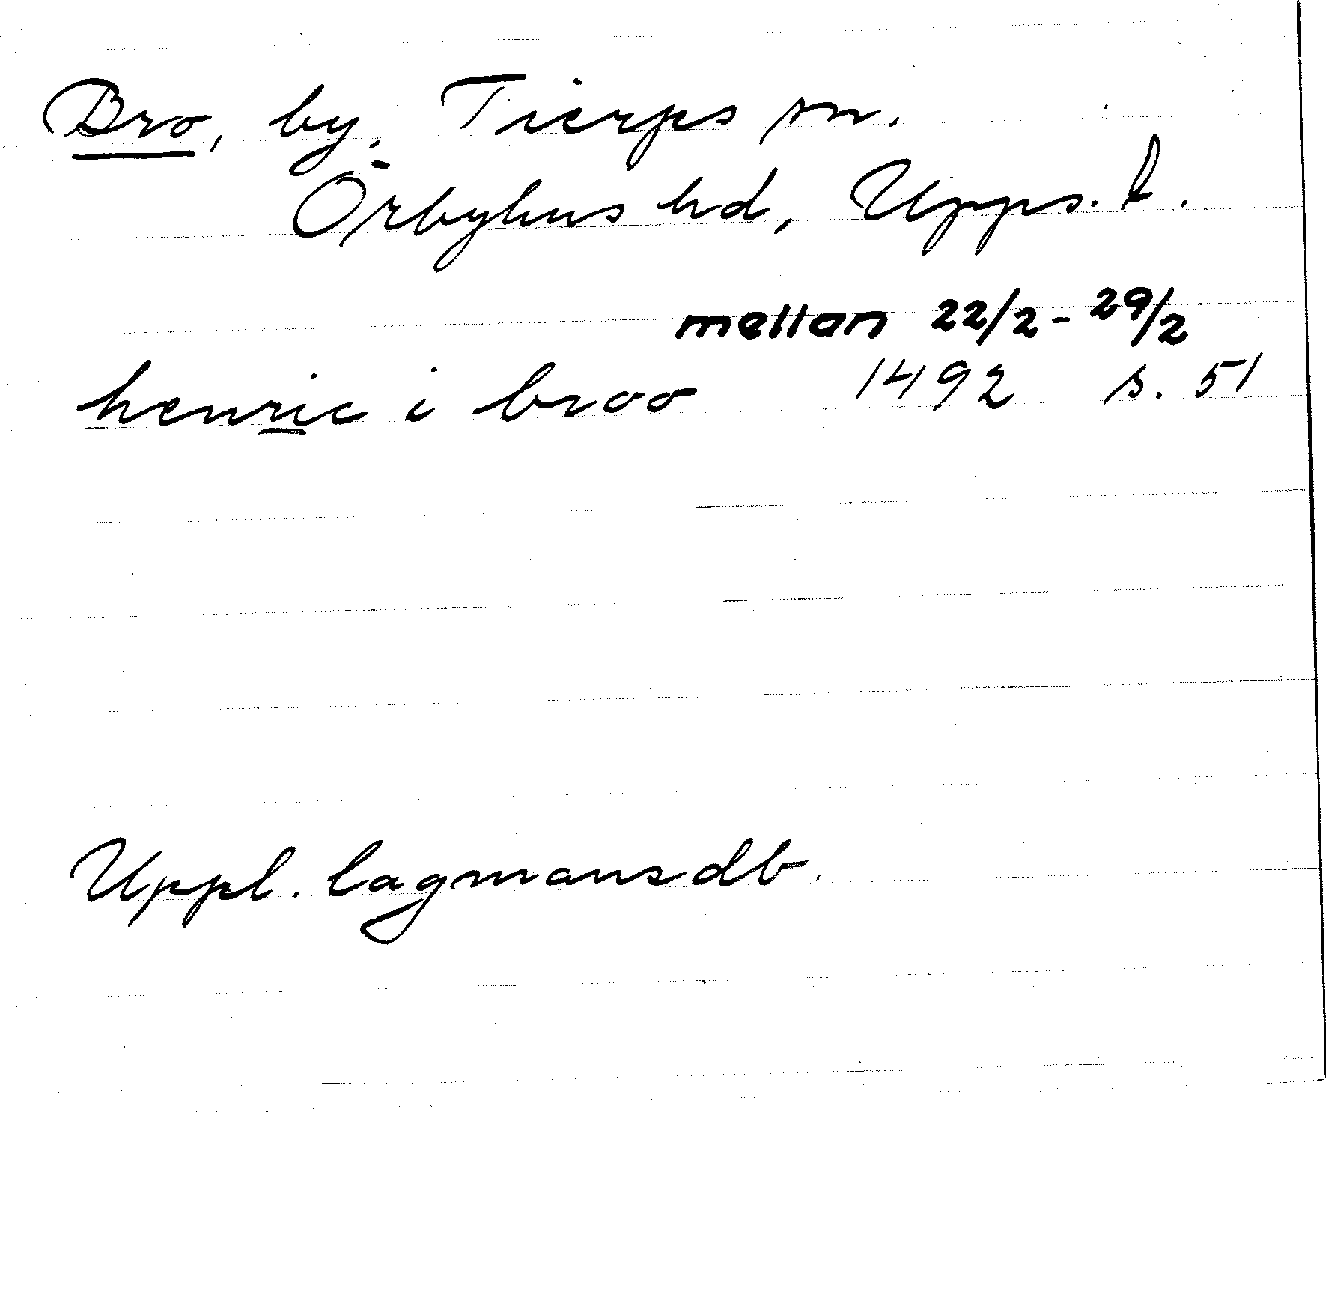 Bro, by, Tierps sn.
Örbyhus hd, Upps. l.
mellan 22/2 - 29/2
henric i broo 1492 s. 51
Uppl. lagmansdb.